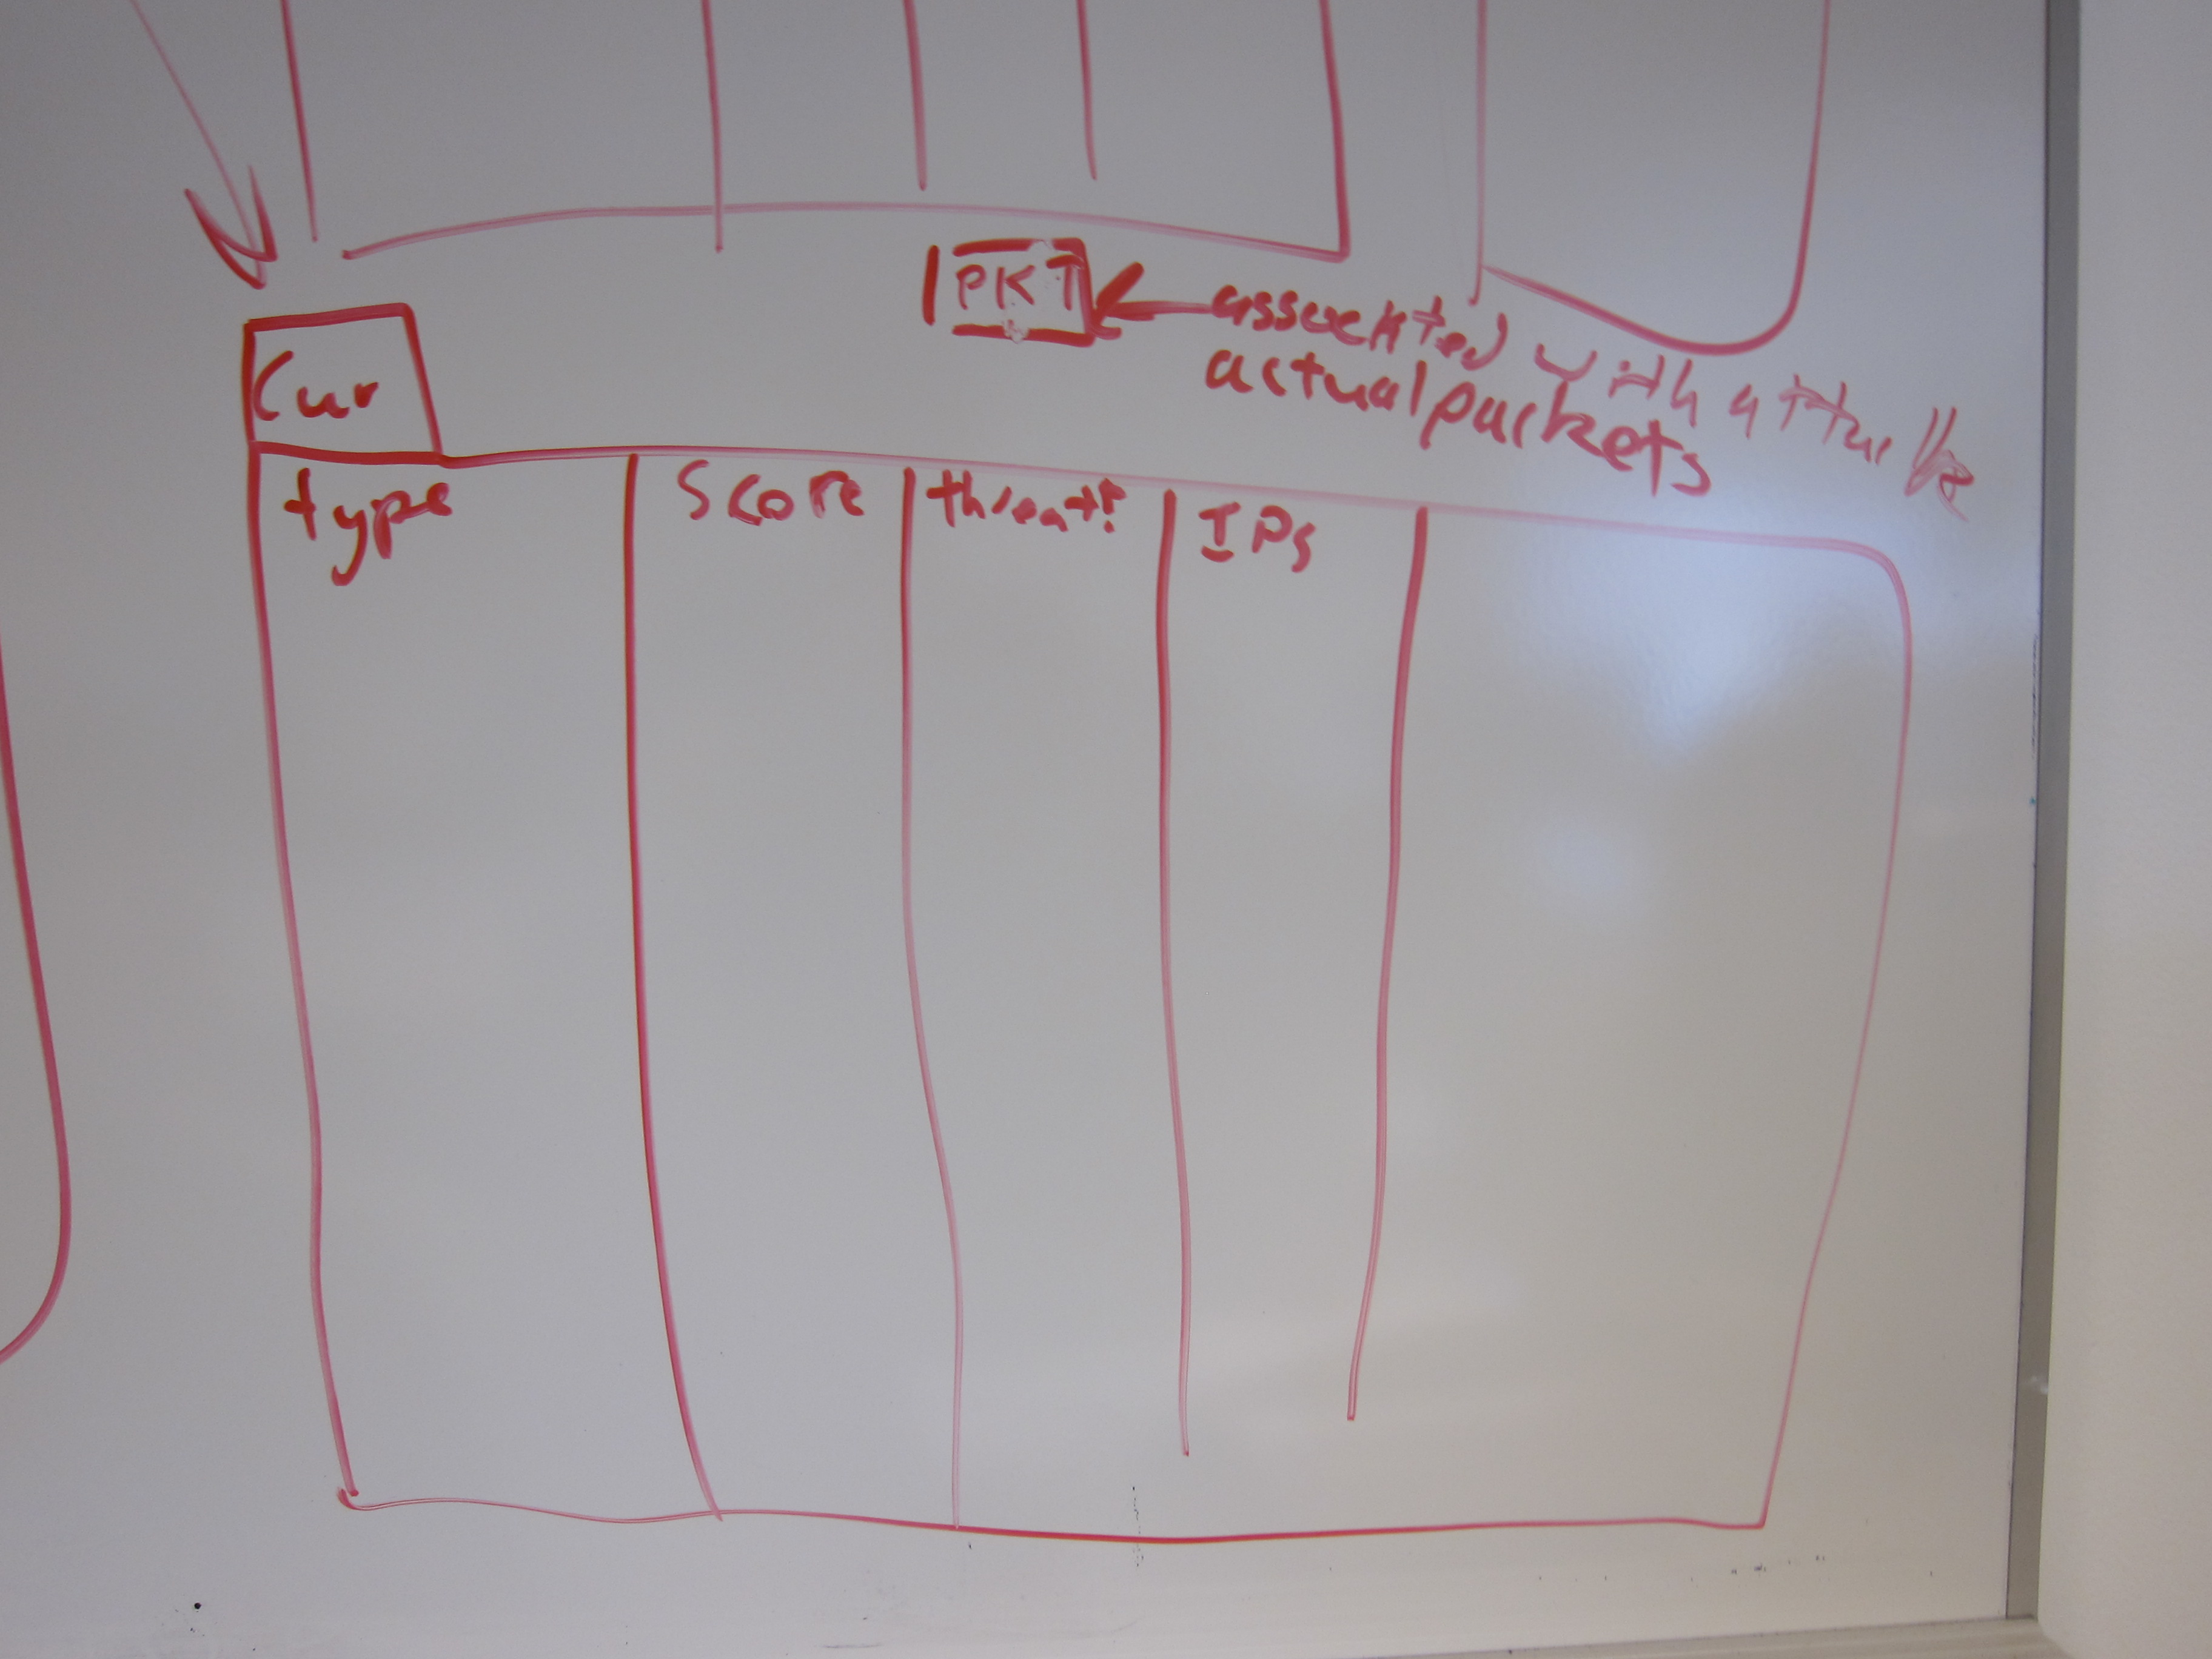 PKT
associated with attack
actual packets
Cur
type score threat? IPs